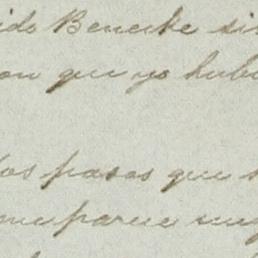 ido Benecke si
on que yo hub
los pasos que s
me parece muy